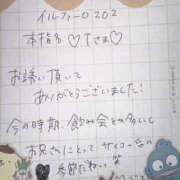 イルフィーロ202
本指名♡Tさま♡
お誘い頂いて
ありがとうございました!
今の時期、飲み会も多いし
お兄さんにとって サイコーな
季節だねい 笑